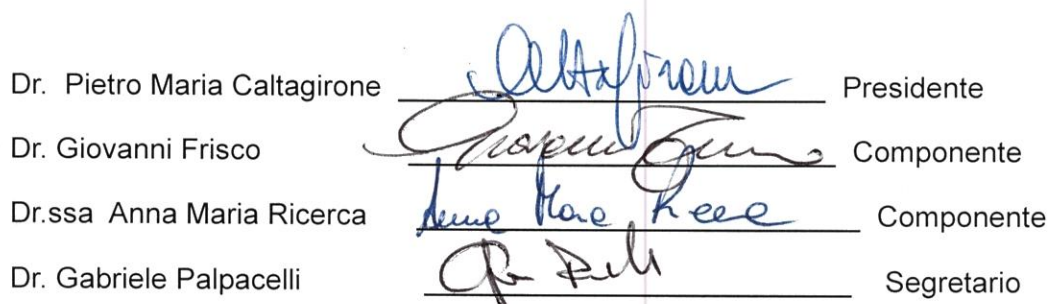 Dr. Pietro Maria Caltagirone Caltagirone Presidente
Dr. Giovanni Frisco Giovanni Componente
Dr.ssa Anna Maria Ricerca Anna Maria Componente
Dr. Gabriele Palpacelli Segretario